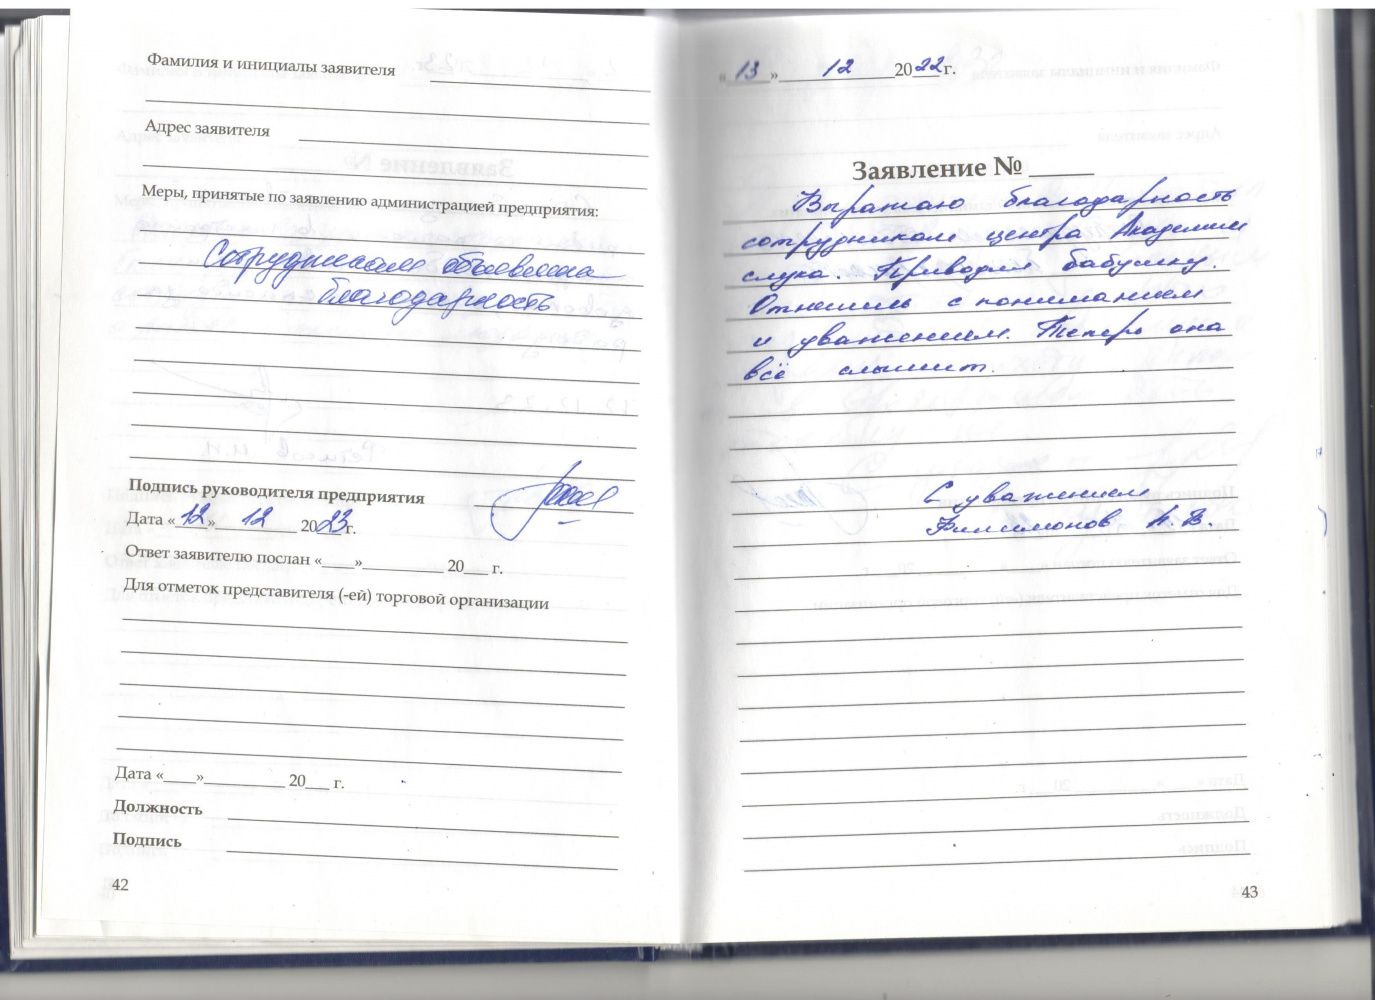 Фамилия и инициалы заявителя
Адрес заявителя
Меры, принятые по заявлению администрацией предприятия:
Сотрудникам объявлена
благодарность
Подпись руководителя предприятия
Дата «12» 12 2023г.
Ответ заявителю послан «____»__________ 20___ г.
Для отметок представителя (-ей) торговой организации
Дата «____»__________ 20___ г.
Должность
Подпись
42
«13» 12 2022г.
Заявление № _____
Выражаю благодарность
сотрудникам центра Академии
слуха. Приводил бабушку.
Отнеслись с пониманием
и уважением. Теперь она
всё слышит.
С уважением
Филимонов А.В.
43